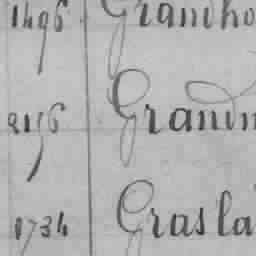 1496 Grandho
2156 Grandm
1734 Grasla